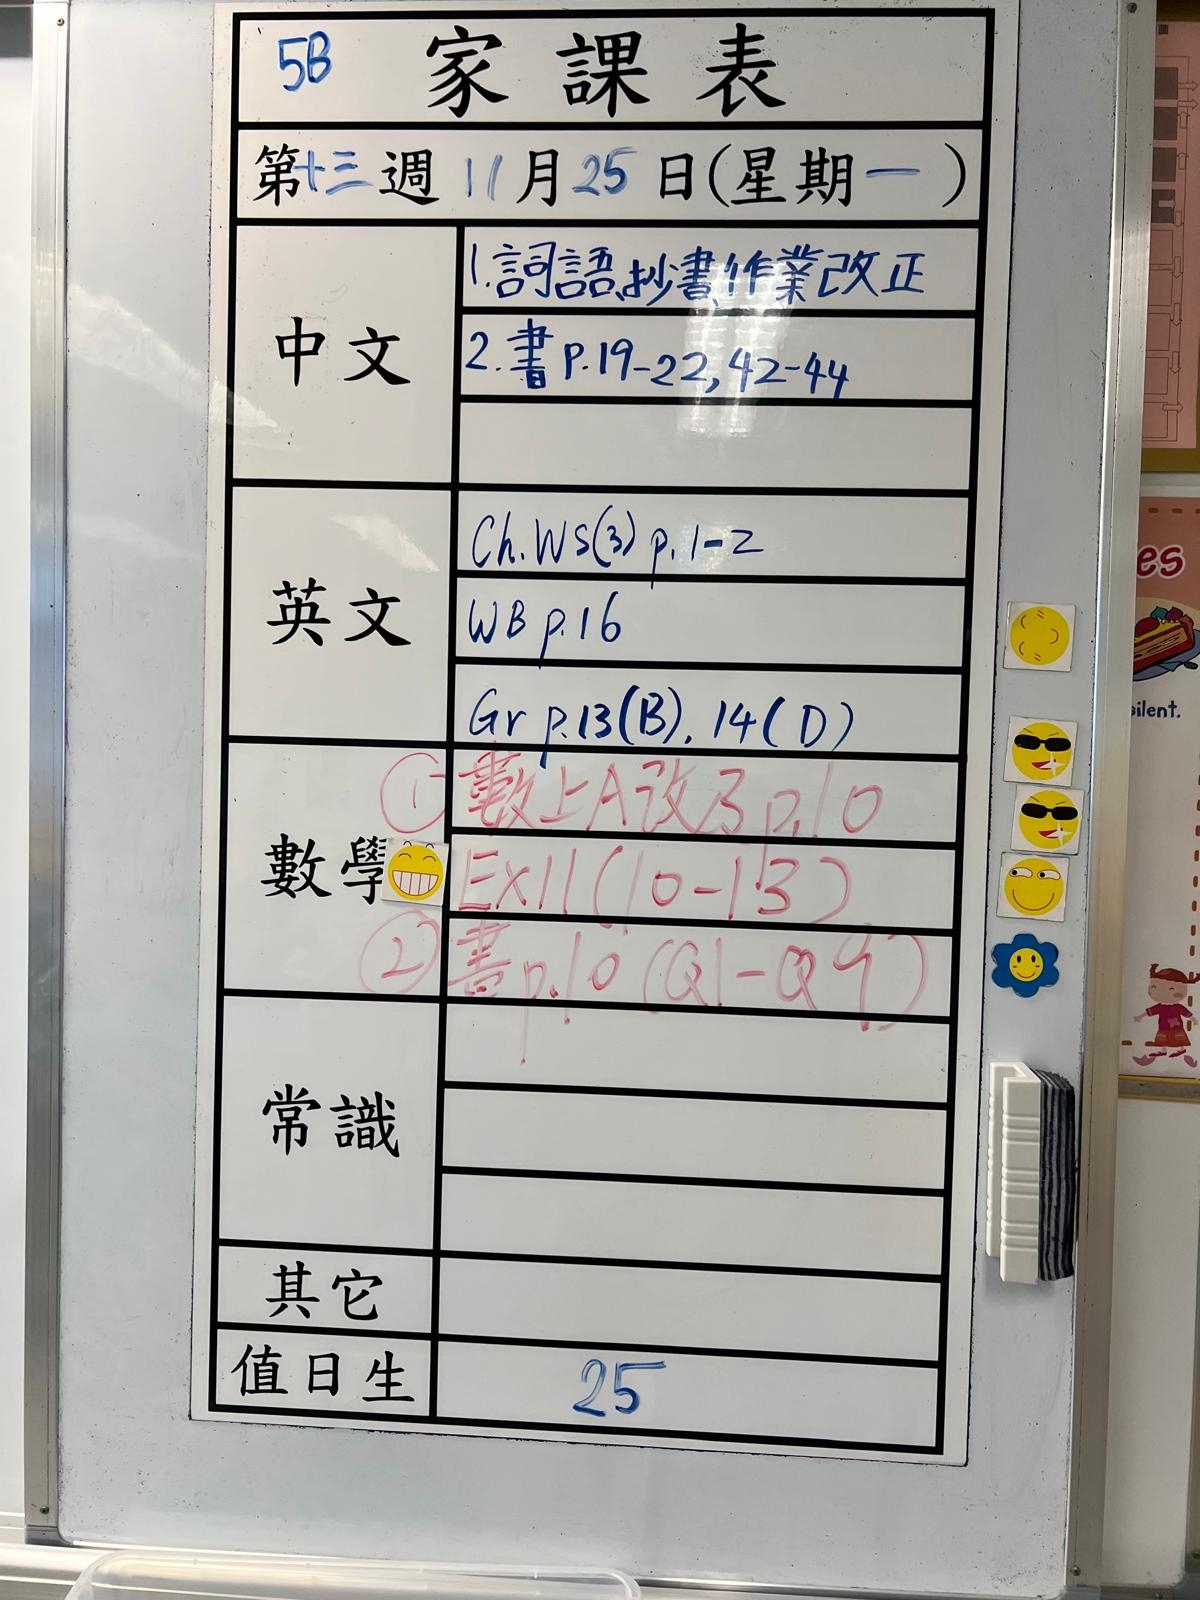 5B 家課表
第十三週 11月25日(星期一)
中文
1.詞語、抄書、作業改正
2.書 p.19-22, 42-44
英文
Ch. WS(3) p.1-2
WB p.16
Gr p.13(B), 14(D)
數學
① 數上A改了p.10
Ex11(10-13)
② 書p.10 (Q1-Q9)
常識
其它
值日生
25
es
silent.